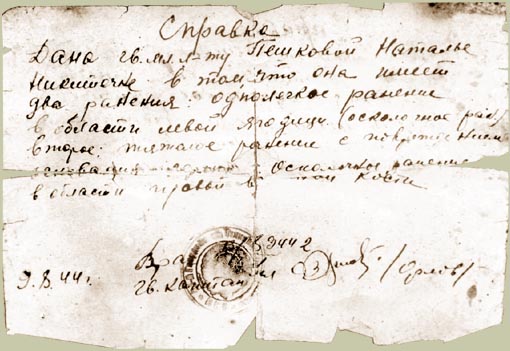 Справка
Дана гв. мл. л-ту Пешковой Наталье
Никитичне в том что она имеет
два ранения: одно легкое ранение
в области левой ягодицы (осколочное ран)
второе: тяжелое ранение с повреждением
осколочное ранение
в области правой кости
Вра 3442
9.8.44 г. гв. капитан /Орлов/